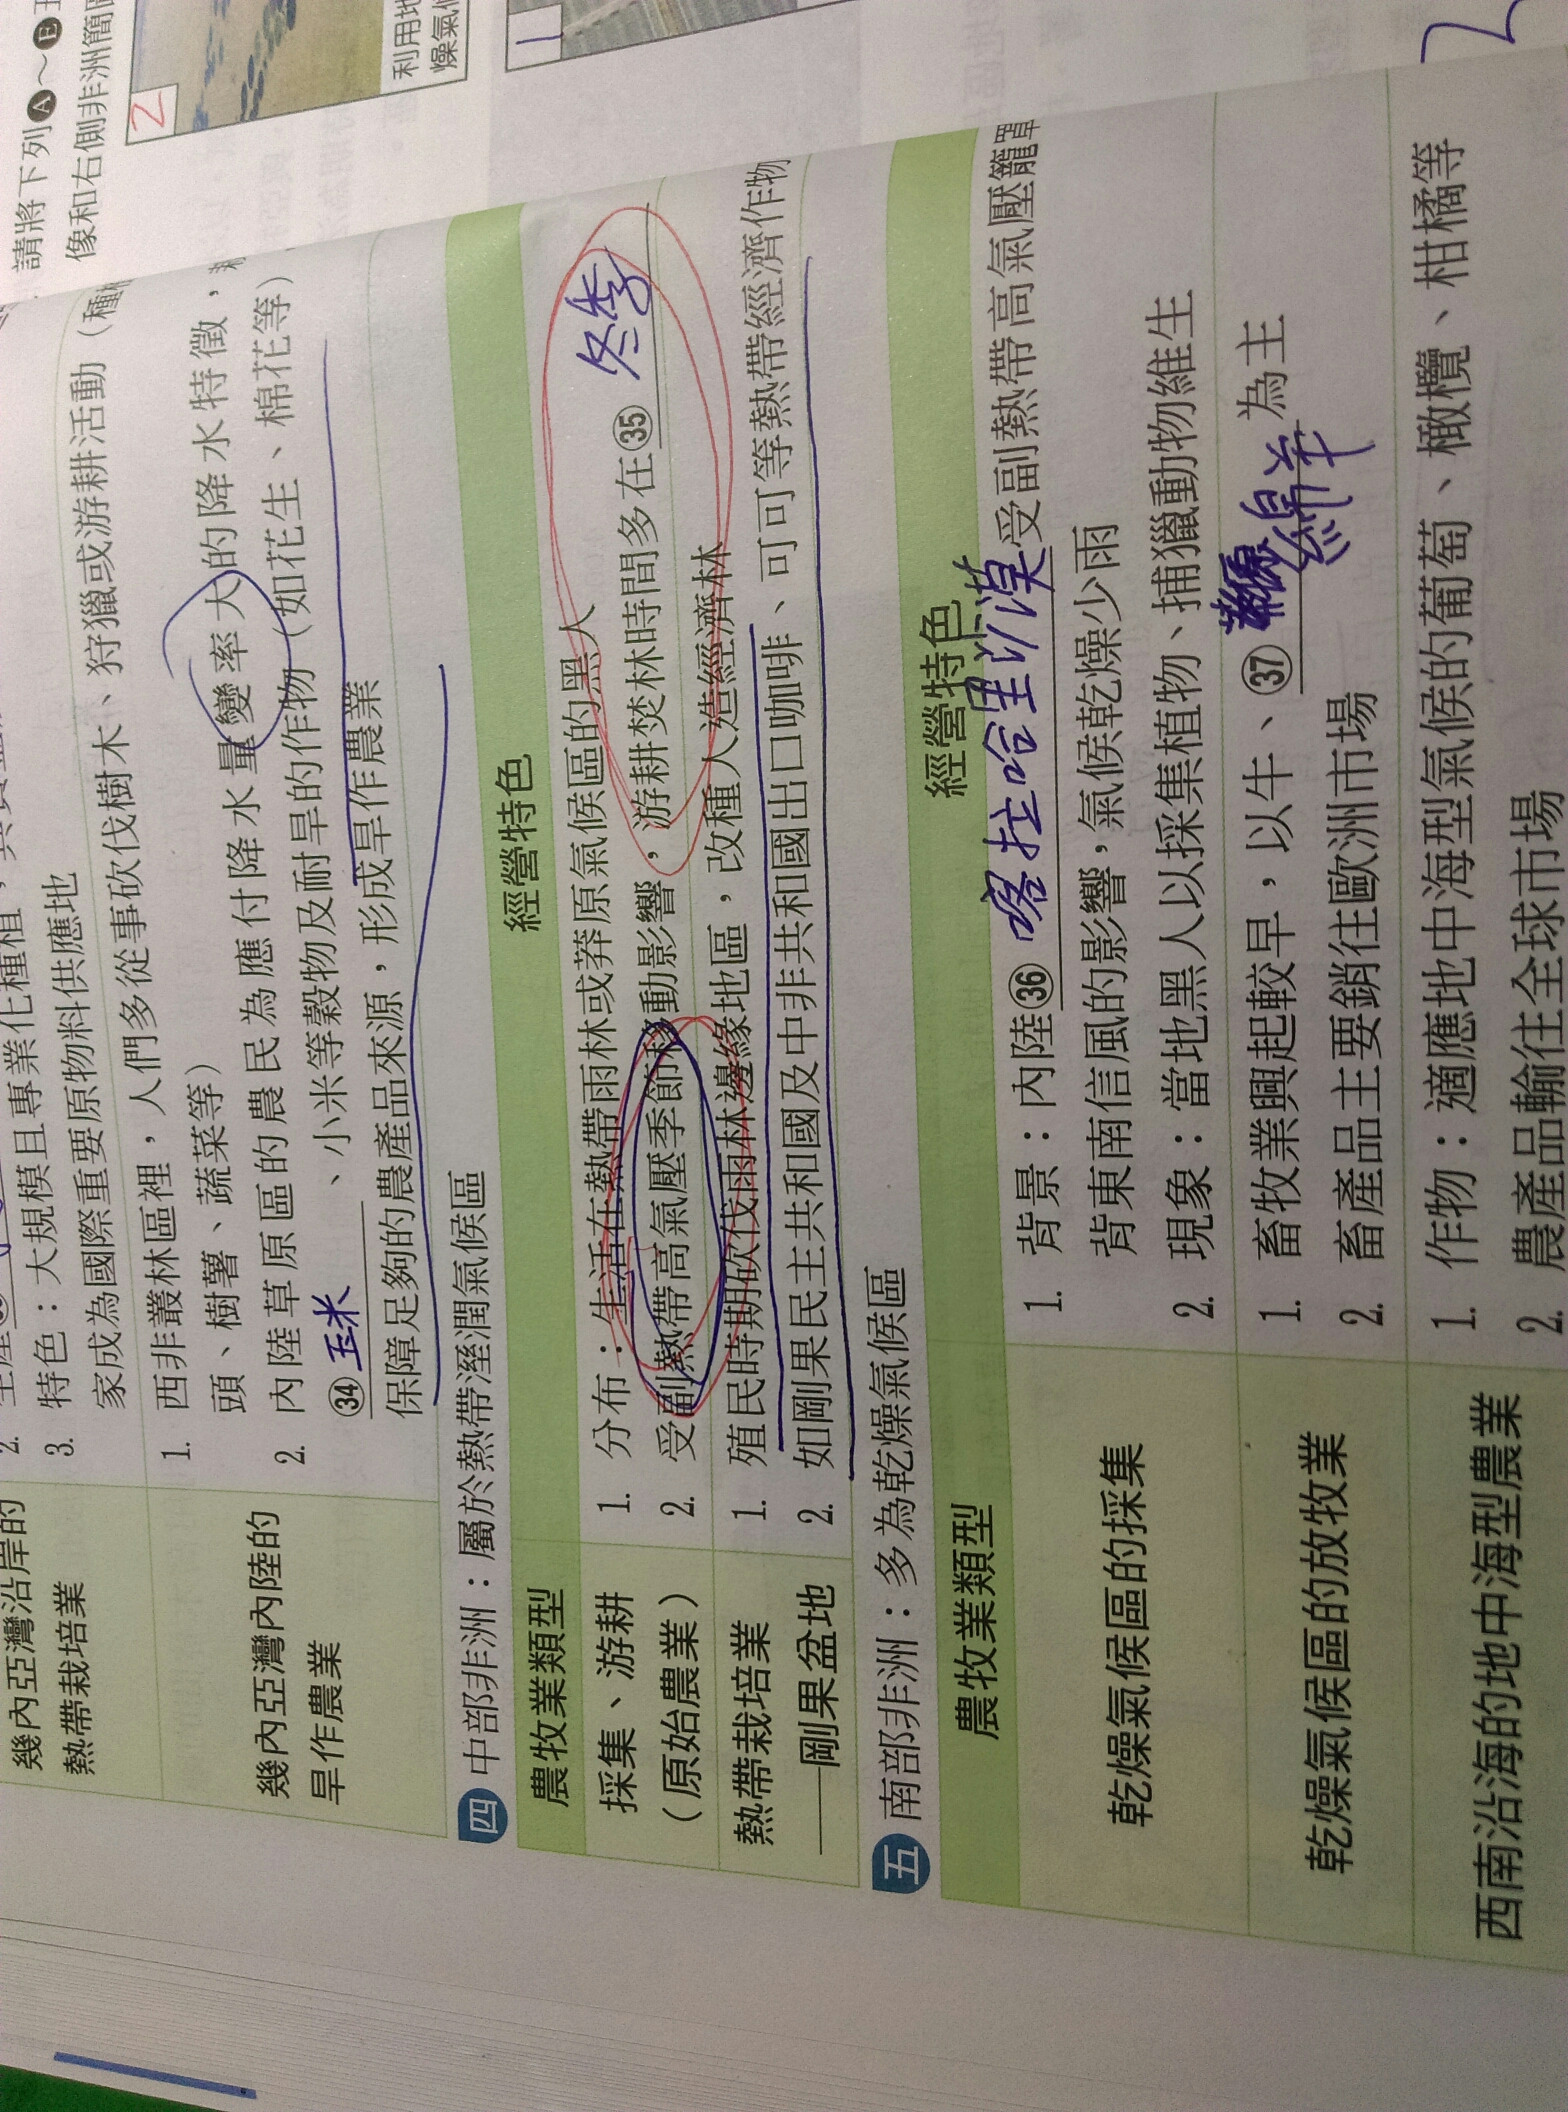 請將下列Ⓐ～Ⓔ
像和右側非洲簡
2
利用地
燥氣候
1
2
幾內亞灣沿岸的
熱帶栽培業
3. 特色：大規模且專業化種植，
家成為國際重要原物料供應地
幾內亞灣內陸的
旱作農業
1. 西非叢林區裡，人們多從事砍伐樹木、狩獵或游耕活動（種
頭、樹薯、蔬菜等）
2. 內陸草原區的農民為應付降水量變率大的降水特徵，
㉞玉米、小米等穀物及耐旱的作物（如花生、棉花等）
保障足夠的農產品來源，形成旱作農業
四 中部非洲：屬於熱帶溼潤氣候區
農牧業類型 經營特色
採集、游耕
（原始農業）
1. 分布：生活在熱帶雨林或莽原氣候區的黑人
2. 受副熱帶高氣壓季節移動影響，游耕焚林時間多在㉟冬季
熱帶栽培業
——剛果盆地
1. 殖民時期砍伐雨林邊緣地區，改種人造經濟林
2. 如剛果民主共和國及中非共和國出口咖啡、可可等熱帶經濟作物
五 南部非洲：多為乾燥氣候區
農牧業類型 經營特色
乾燥氣候區的採集
1. 背景：內陸㊱喀拉哈里沙漠受副熱帶高氣壓籠罩
背東南信風的影響，氣候乾燥少雨
2. 現象：當地黑人以採集植物、捕獵動物維生
乾燥氣候區的放牧業
1. 畜牧業興起較早，以牛、㊲綿羊為主
2. 畜產品主要銷往歐洲市場
西南沿海的地中海型農業
1. 作物：適應地中海型氣候的葡萄、橄欖、柑橘等
2. 農產品輸往全球市場